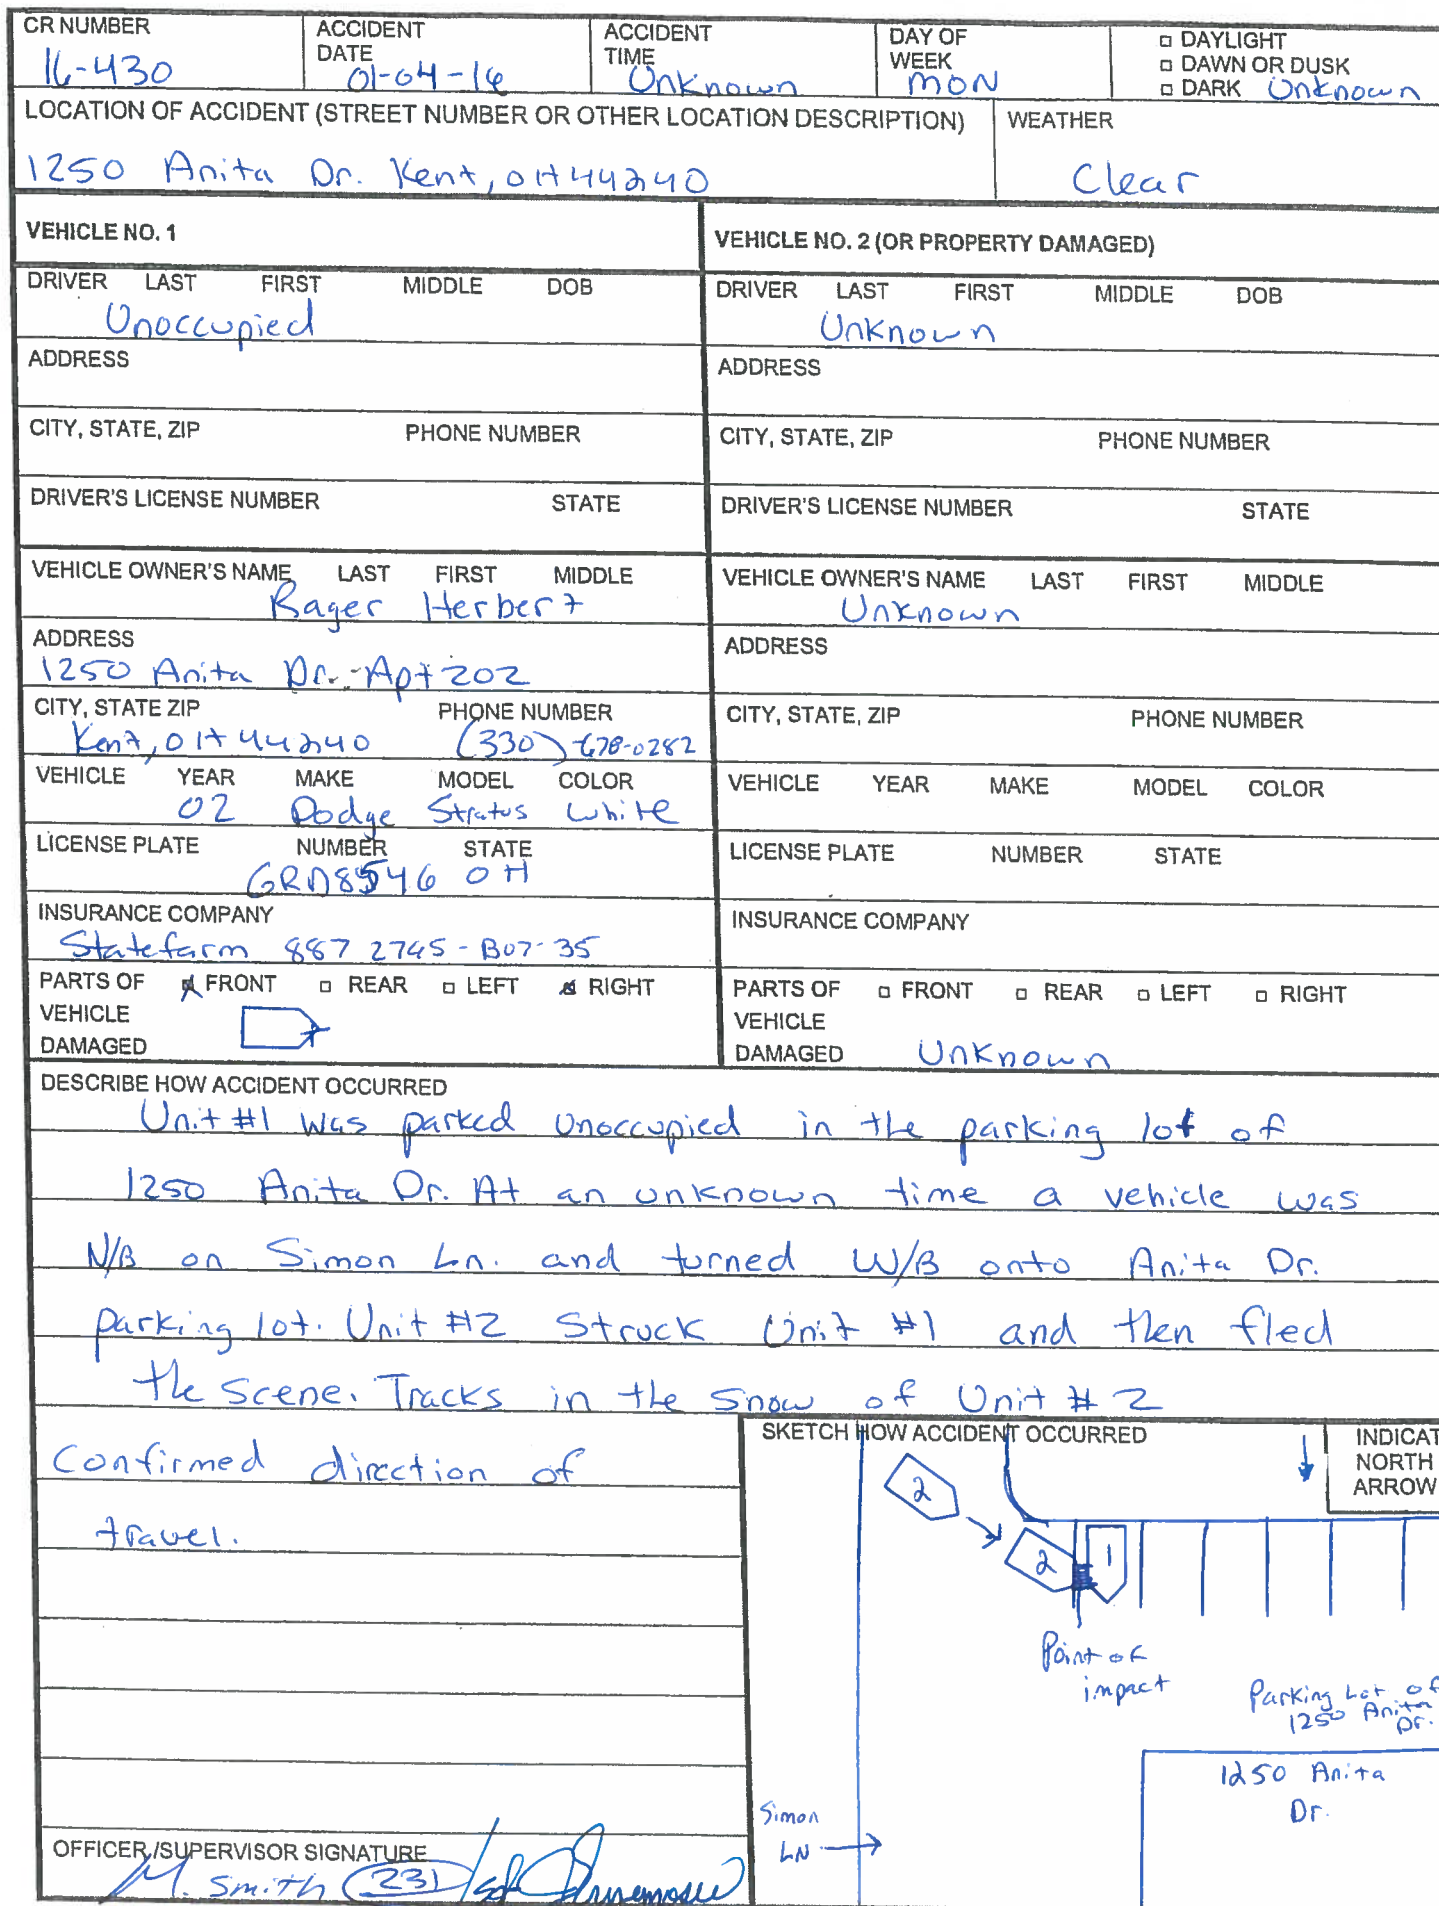 CR NUMBER
16-430
ACCIDENT
DATE
01-04-16
ACCIDENT
TIME
Unknown
DAY OF
WEEK
MON
DAYLIGHT
DAWN OR DUSK
DARK Unknown
LOCATION OF ACCIDENT (STREET NUMBER OR OTHER LOCATION DESCRIPTION)
1250 Anita Dr. Kent, OH 44240
WEATHER
Clear
VEHICLE NO. 1
DRIVER LAST FIRST MIDDLE DOB
Unoccupied
ADDRESS
CITY, STATE, ZIP PHONE NUMBER
DRIVER'S LICENSE NUMBER STATE
VEHICLE OWNER'S NAME LAST FIRST MIDDLE
Rager Herbert
ADDRESS
1250 Anita Dr. Apt 202
CITY, STATE ZIP PHONE NUMBER
Kent, OH 44240 (330) 678-0282
VEHICLE YEAR MAKE MODEL COLOR
02 Dodge Stratus White
LICENSE PLATE NUMBER STATE
GRD8546 OH
INSURANCE COMPANY
Statefarm 887 2745-B07-35
PARTS OF FRONT REAR LEFT RIGHT
VEHICLE
DAMAGED
VEHICLE NO. 2 (OR PROPERTY DAMAGED)
DRIVER LAST FIRST MIDDLE DOB
Unknown
ADDRESS
CITY, STATE, ZIP PHONE NUMBER
DRIVER'S LICENSE NUMBER STATE
VEHICLE OWNER'S NAME LAST FIRST MIDDLE
Unknown
ADDRESS
CITY, STATE, ZIP PHONE NUMBER
VEHICLE YEAR MAKE MODEL COLOR
LICENSE PLATE NUMBER STATE
INSURANCE COMPANY
PARTS OF FRONT REAR LEFT RIGHT
VEHICLE
DAMAGED Unknown
DESCRIBE HOW ACCIDENT OCCURRED
Unit #1 was parked unoccupied in the parking lot of
1250 Anita Dr. At an unknown time a vehicle was
N/B on Simon Ln. and turned W/B onto Anita Dr.
parking lot. Unit #2 Struck Unit #1 and then fled
the scene. Tracks in the snow of Unit #2
Confirmed direction of
travel.
OFFICER/SUPERVISOR SIGNATURE
M. Smith 231
SKETCH HOW ACCIDENT OCCURRED
INDICAT
NORTH
ARROW
2
2
1
Point of
impact
Parking Lot of
1250 Anita
Dr.
1250 Anita
Dr.
Simon
LN